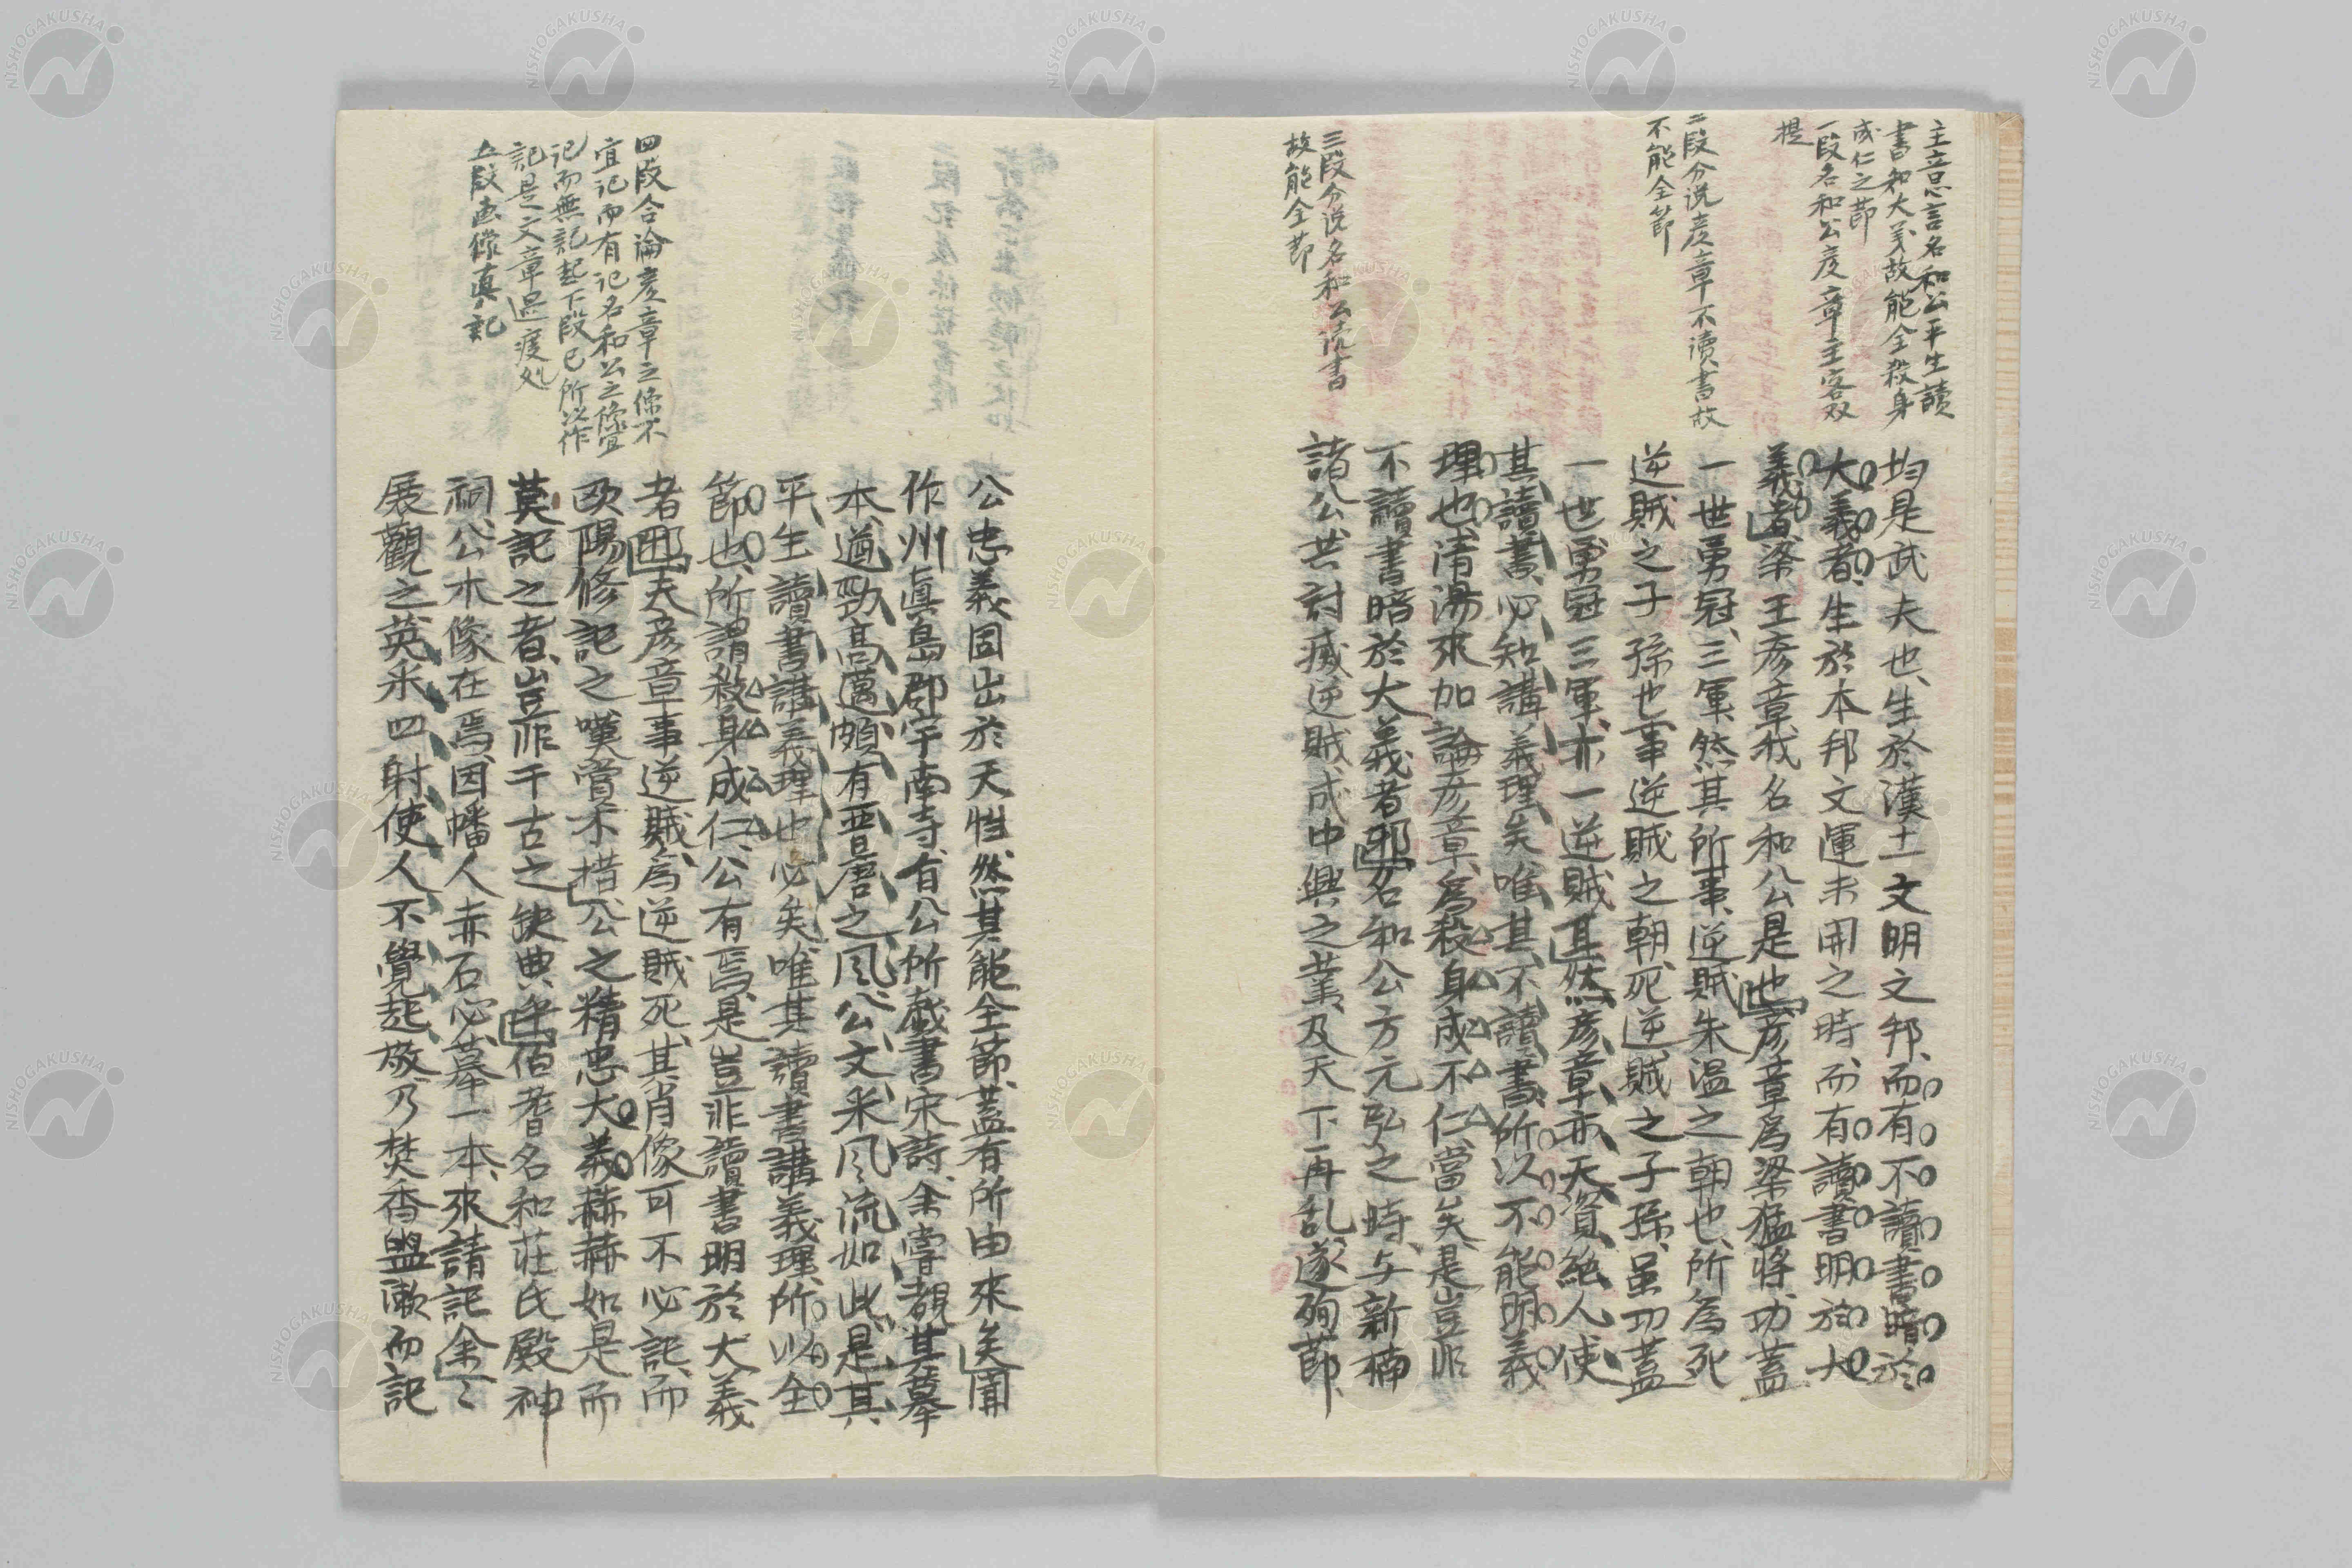 主立思言名和公平生讀
書知大義故能全殺身
成仁之節
一段名和公彦章主客双
提
二段分说彦章不讀書故
不能全節
三段分说名和公读書
故能全节
均是武夫也、生於漢土文明之邦、而有不讀書暗於
大義者、生於本邦文運未開之時、而有讀書明於大
義者、梁王彦章、我名和公是也、彦章為梁猛將、功蓋
一世、勇冠三軍、然其所事、逆賊朱温之朝也、所為死
逆賊之子孫也、事逆賊之朝、死逆賊之子孫、虽功蓋
一世、勇冠三軍、亦一逆賊、其然、彦章亦天資絶人、使
其讀書、必知講義理矣、唯其不讀書、所以不能明義
理也、清湯來加論彦章、為殺身成不仁、當矣、是豈非
不讀書暗於大義者邪、名和公方元弘之時、与新楠
諸公、共討滅逆賊、成中興之業、及天下再乱、遂殉節、
四段合論彦章之像不
宜记而有记名和公之像宜
记而無記起下段已所以作
記是文章過渡処
五段画像真記
公忠義固出於天性、然其能全節、蓋有所由來矣、聞
作州眞島郡宇南寺、有公所戯書宋詩、余嘗覩其摹
本、遒勁高邁、頗有晋唐之风、公文采风流如此、是其
平生讀書講義理也必矣、唯其讀書講義理、所以全
節也、所謂殺身成仁、公有焉、是豈非讀書明於大義
者邪、夫彦章事逆賊、為逆賊死、其肖像可不必記、而
欧陽修記之、嘆賞不措、公之精忠大義、赫赫如是、而
莫記之者、豈非千古之缺典乎、伯耆名和莊氏殿神
祠、公木像在焉、因幡人赤石必、摹一本、來請記余、々
展觀之、英采四射、使人不覺起敬、乃焚香盥漱而記
NISHOGAKUSHA